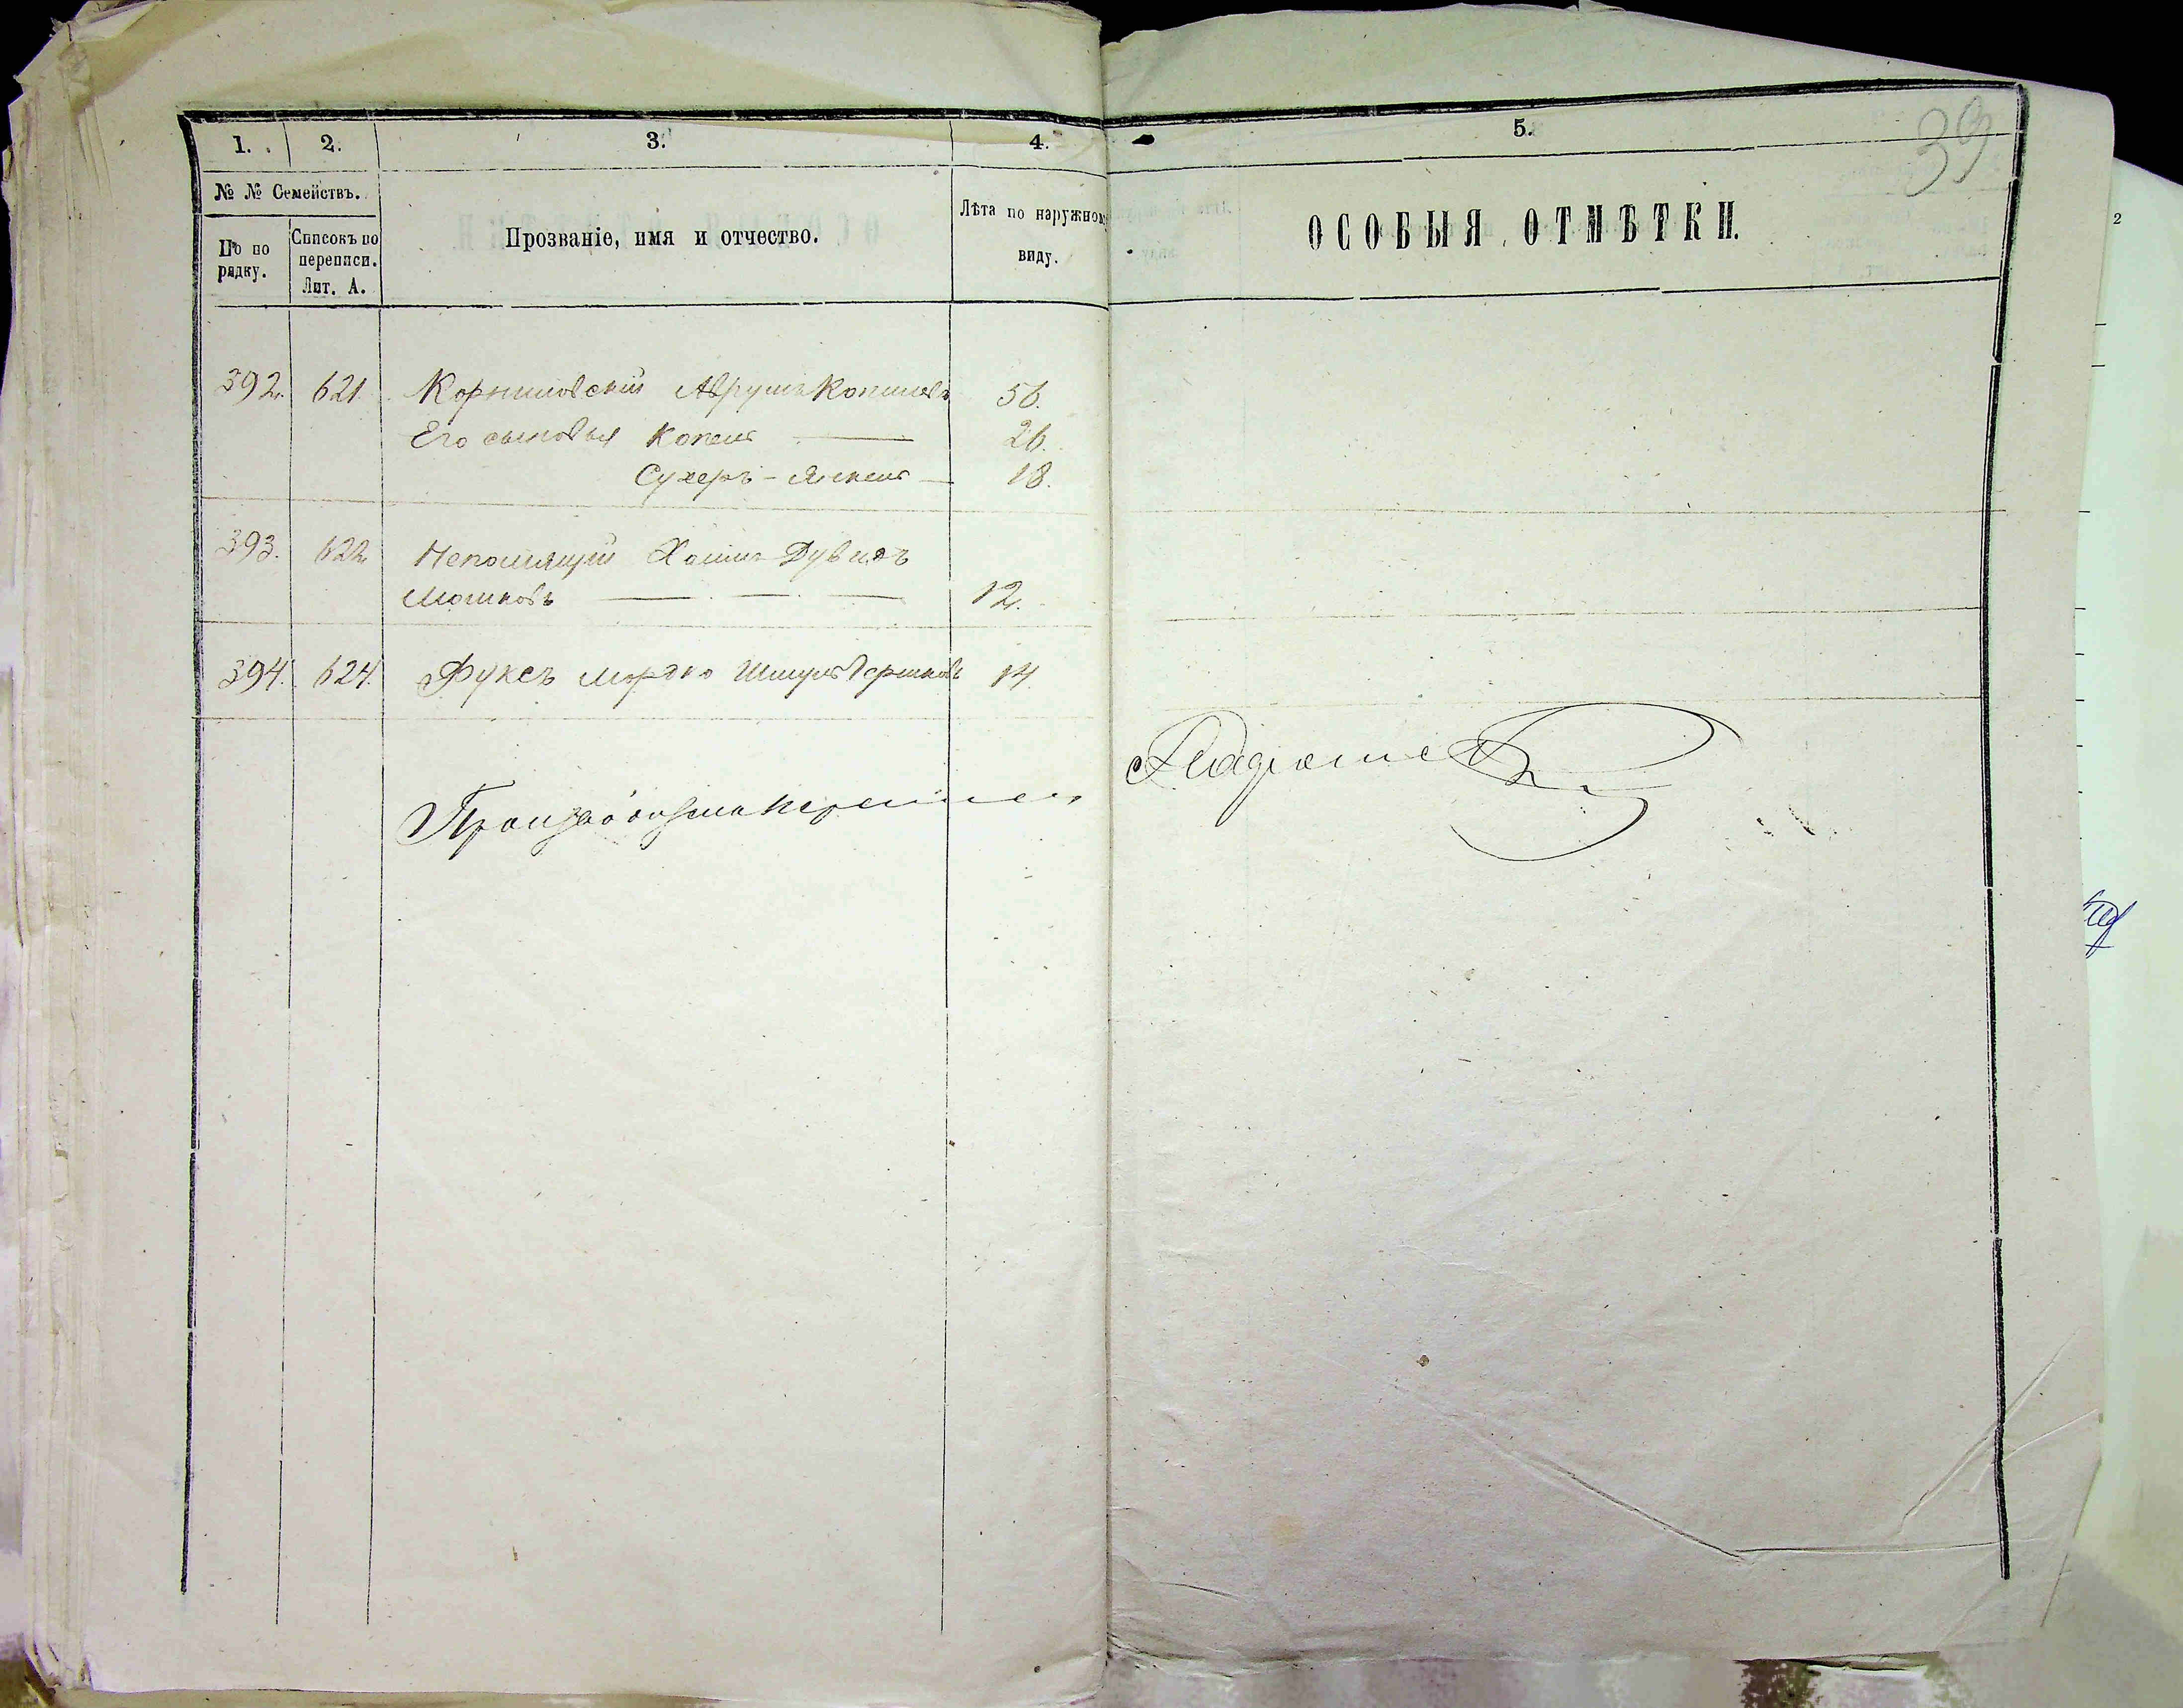 1. 2. 3. 4. 5. 39
№ № Семействъ.
По по рядку.
Списокъ по переписи. Лит. А.
Прозваніе, имя и отчество.
Лѣта по наружному виду.
ОСОБЫЯ ОТМѢТКИ.
392. 621. Корниловскій Аврумъ Копелевъ 56.
Его сыновья Копель 26.
Сухеръ-Янкель 18.
393. 622 Непомнящій Хаимъ-Дувидъ
Мошковъ 12.
394. 624. Фуксъ Мордко Шмуль Гершковъ 14.
Производившій